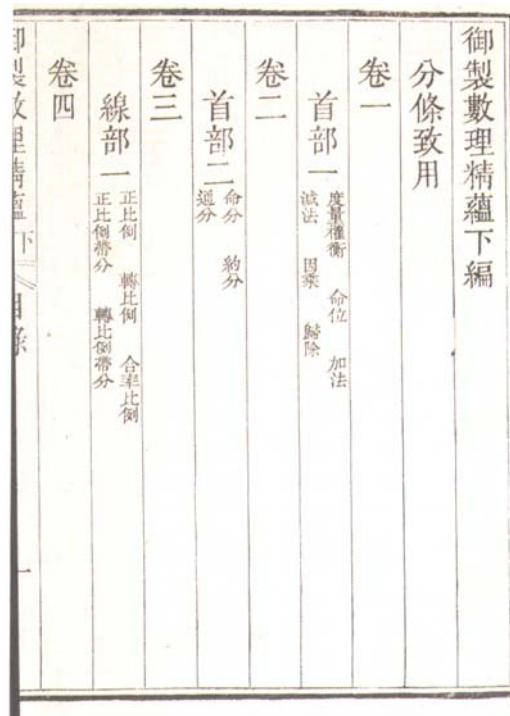 御製數理精蘊下編
分條致用
卷一
首部一
度量權衡 命位 加法
減法 因乘 歸除
卷二
首部二
命分 約分
通分
卷三
線部一
正比例 轉比例 合率比例
正比例帶分 轉比例帶分
卷四
御製數理精蘊下 目錄 一